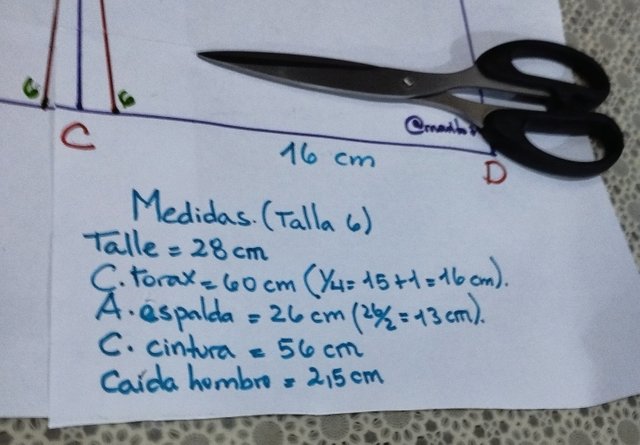 6 6
C
16 cm
D
Medidas. (Talla 6)
Talle = 28 cm
C. torax = 60 cm (1/4 = 15 + 1 = 16 cm).
A. espalda = 26 cm (26/2 = 13 cm).
C. cintura = 56 cm
Caida hombro = 2,5 cm